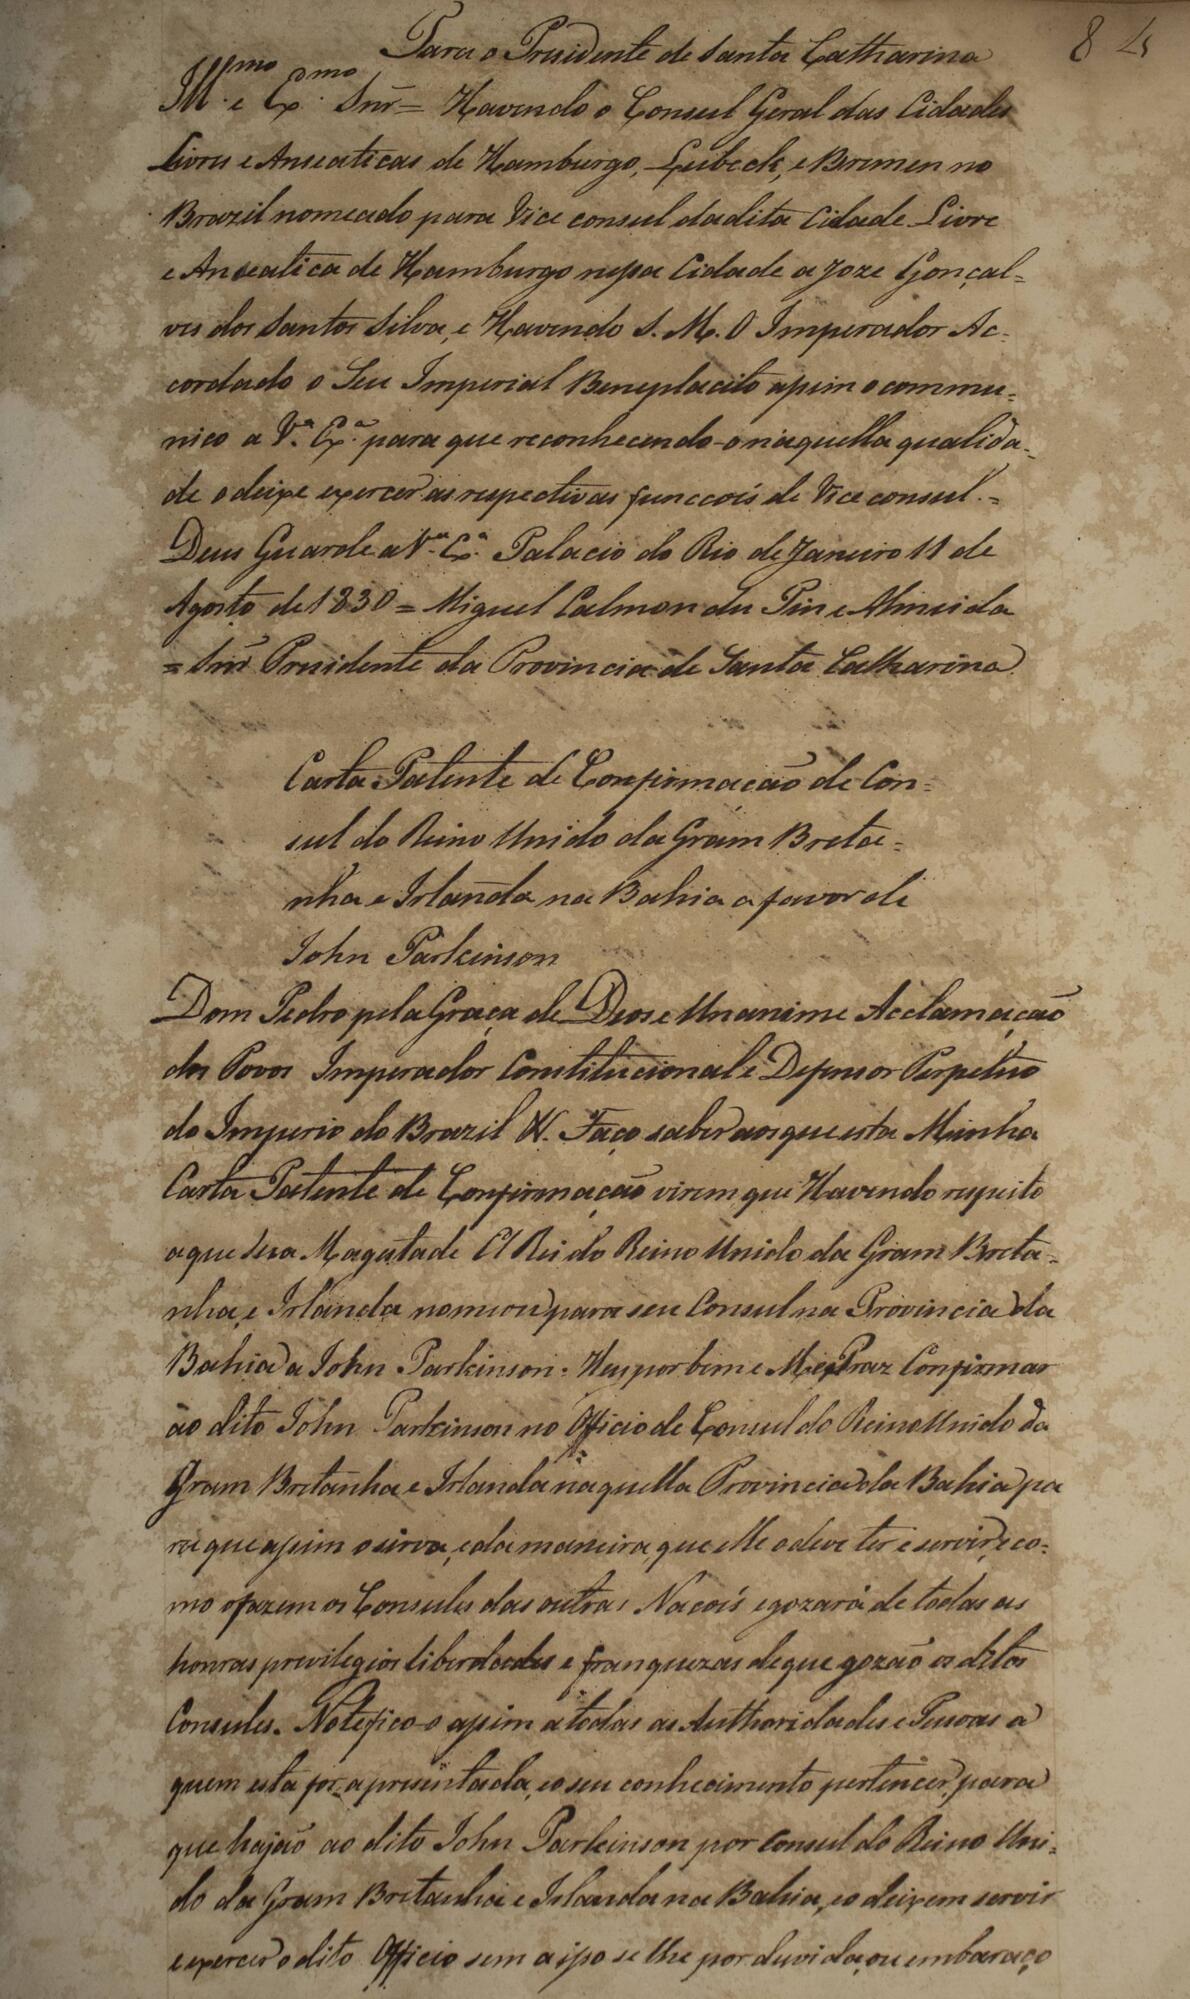 84
Para o Presidente de Santa Catharina
Illmo. e Exmo. Snr = Havendo o Consul Geral das Cidades
Livres e Anseaticas de Hamburgo, Lubeck, e Bremen no
Brazil nomeado para Vice consul da dita Cidade Livre
e Anseatica de Hamburgo nessa Cidade a Joze Gonçal=
ves dos Santos Silva, e Havendo S. M. O Imperador Ac-
cordado o Seu Imperial Beneplacito assim o commu=
nico a Va. Exa. para que reconhecendo-o naquella qualida-
de o deixe exercer as respectivas funccois de Vice consul. =
Deus Guarde a Va. Exa. Palacio do Rio de Janeiro 11 de
Agosto de 1830 = Miguel Calmon du Pin e Almeida
= Snr Presidente da Provincia de Santa Catharina
Carta Patente de Confirmação de Con=
sul do Reino Unido da Gram Breta=
nha e Irlanda na Bahia a favor de
John Parkinson
Dom Pedro pela Graça de Deos e Unanime Acclamação
dos Povos Imperador Constitucional e Defensor Perpetuo
do Imperio do Brazil &. Faço saber aos que esta Minha
Carta Patente de Confirmação virem que Havendo respeito
a que Sua Magestade El Rei do Reino Unido da Gram Breta-
nha, e Irlanda nomeou para seu Consul na Provincia da
Bahia a John Parkinson: Hey por bem e Me Praz Confirmar
ao dito John Parkinson no Officio de Consul do Reino Unido da
Gram Bretanha e Irlanda naquella Provincia da Bahia pa
ra que assim o sirva, e da maneira, que elle o deve ter e servir, e co=
mo o fazem os Consules das outras Nacois e gozará de todas as
honras previlegios liberdades e franquezas de que gozão os ditos
Consules. Notefico-o assim a todas as Authoridades e Pessoas a
quem esta for apresentada, e o seu conhecimento pertencer, para
que hajão ao dito John Parkinson por Consul do Reino Uni=
do da Gram Bretanha e Irlanda na Bahia, e o deixem servir
e exercer o dito Officio sem a isso se lhe por duvida, ou embaraço